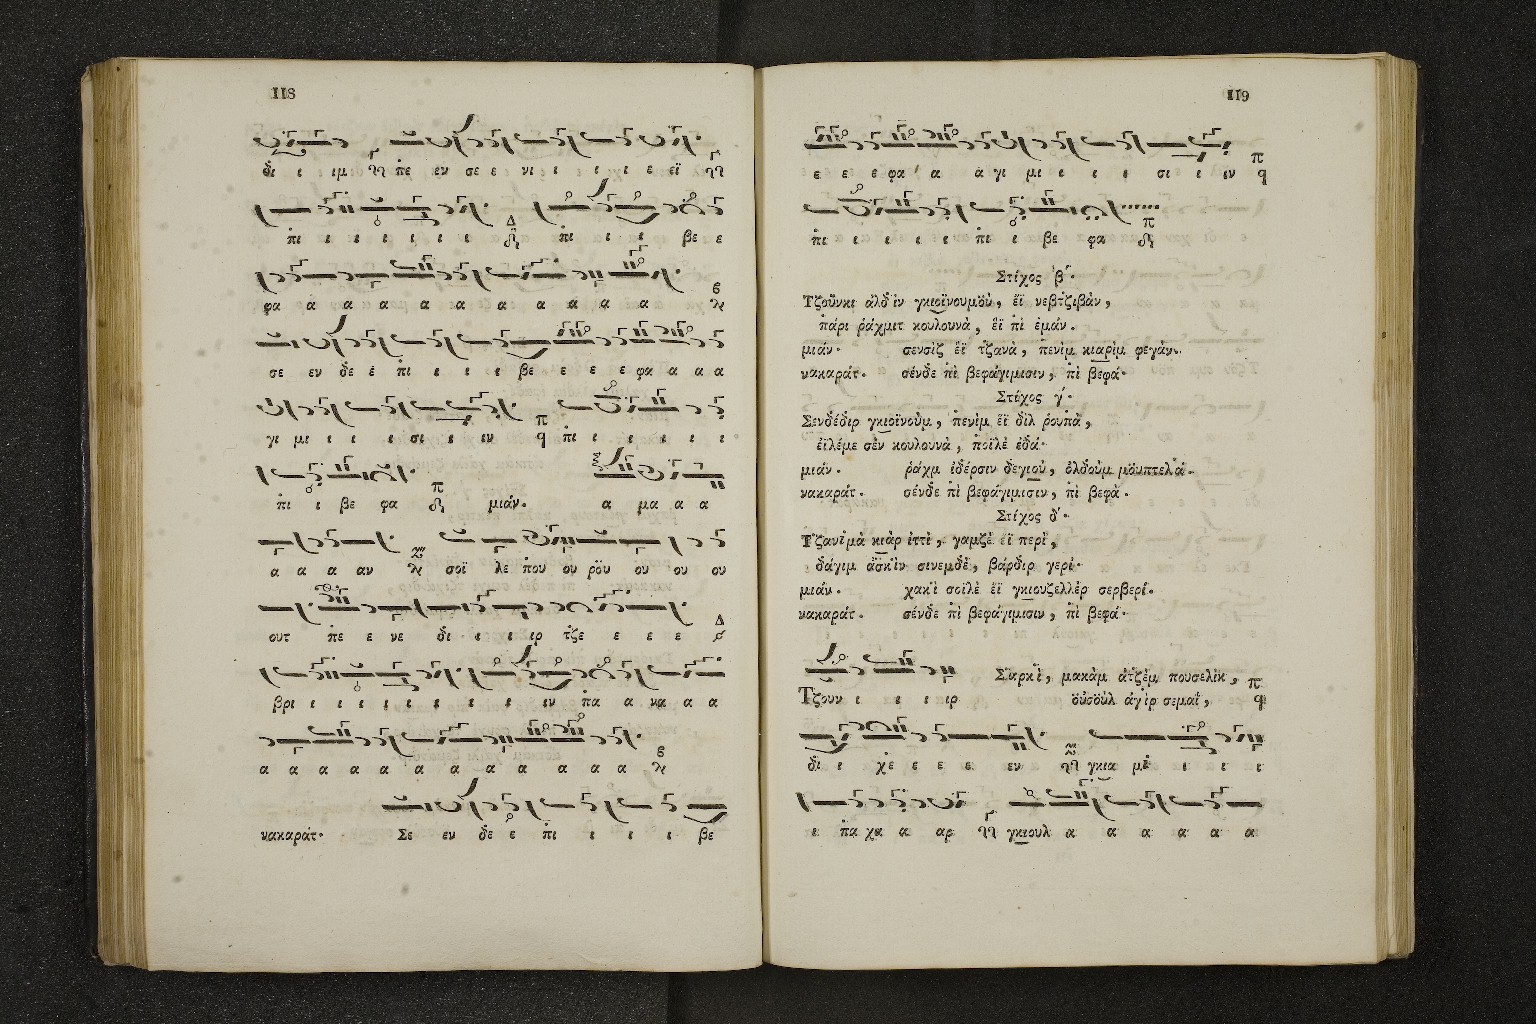 118
δι ι ιμ πε εν σε ε νι ι ι ι ι ε εϊ
πι ι ι ι ι ι ι πι ι ι βε ε
φα α α α α α α α α α α
σε εν δε ε πι ι ι ι βε ε ε ε φα α α α
γι μι ι ι ι σι ι ιν πι ι ι ι ι
πι ι βε φα μιάν. α μα α α
α α α αν σοϊ λε που ου ρόυ ου ου ου
ουτ πε ε νε δι ι ι ιρ τζε ε ε ε
βρι ι ι ι ι ι ι ι ι ιν πα α να α α
α α α α α α α α α α α α α
νακαράτ. Σε εν δε ε πι ι ι ι βε
119
ε ε ε φα α α γι μι ι ι ι σι ι ιν
πι ι ι ι ι πι ι βε φα
Στίχος β'.
Τζοῦνκι ἀλδὶν γκιοϊνουμοὺ, ἐῒ νεβτζιβὰν,
πάρι ῥάχμιτ κουλουνὰ, ἐῒ πὶ ἐμάν.
μιάν. σενσὶζ ἐῒ τζανὰ, πενὶμ κιαρὶμ φεγάν.
νακαράτ. σένδε πὶ βεφάγιμισιν, πὶ βεφά.
Στίχος γ'.
Σενδέδιρ γκιοϊνοῦμ, πενὶμ ἐῒ δὶλ ῥουπὰ,
ἐϊλέμε σὲν κουλουνὰ, ποϊλὲ ἐδά.
μιάν. ῥάχμ ἰδέρσιν δεγιοὺ, ὀλδοὺμ μὸυπτελά.
νακαράτ. σένδε πὶ βεφάγιμισιν, πὶ βεφά.
Στίχος δ'.
Τζανῒμὰ κιὰρ ἐττὶ, γαμζὲ ἐῒ περὶ,
δάγιμ ἀσκὶν σινεμδὲ, βάρδιρ γερί.
μιάν. χακὶ σοϊλὲ ἐῒ γκιουζελλὲρ σερβερί.
νακαράτ. σένδε πὶ βεφάγιμισιν, πὶ βεφά.
Σαρκὶ, μακὰμ ἀτζὲμ πουσελὶκ,
Τζουν ι ι ι ιρ οὐσοὺλ ἀγὶρ σεμαῒ,
δι ι χε ε ε ε εν γκια με ι ι ι
ε πα χα α αρ γκιουλ α α α α α α